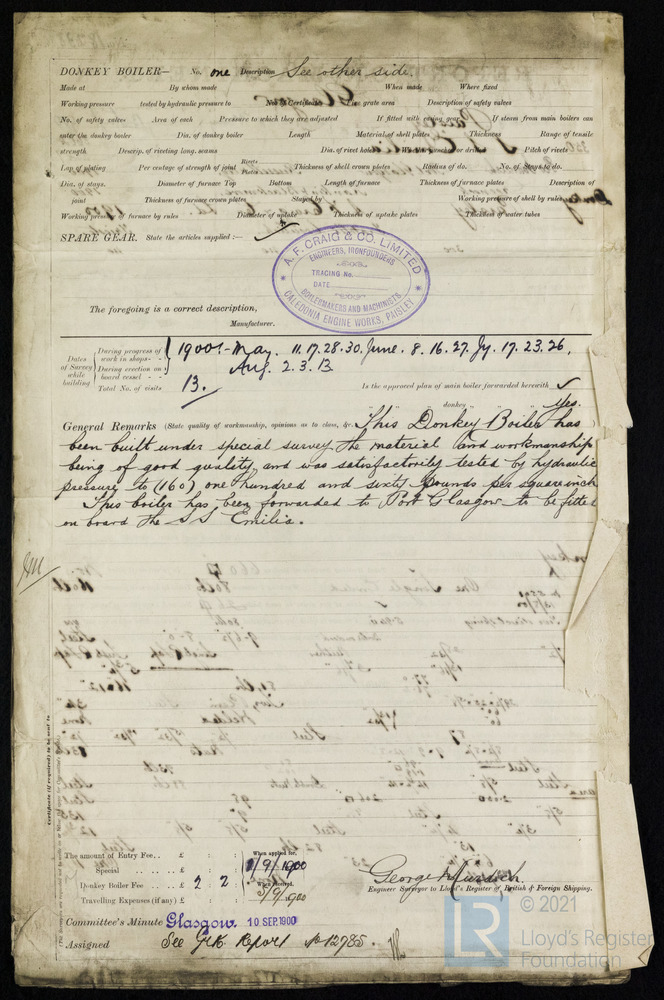 DONKEY BOILER— No. one Description See other side.
Made at By whom made When made Where fixed
Working pressure tested by hydraulic pressure to No. of Certificate Fire grate area Description of safety valves
No. of safety valves Area of each Pressure to which they are adjusted If fitted with easing gear If steam from main boilers can
enter the donkey boiler Dia. of donkey boiler Length Material of shell plates Thickness Range of tensile
strength Descrip. of riveting long. seams Dia. of rivet holes Whether punched or drilled Pitch of rivets
Lap of plating Per centage of strength of joint Rivets Thickness of shell crown plates Radius of do. No. of Stays to do.
Dia. of stays. Diameter of furnace Top Bottom Length of furnace Thickness of furnace plates Description of
joint Thickness of furnace crown plates Stayed by Working pressure of shell by rules
Working pressure of furnace by rules Diameter of uptake Thickness of uptake plates Thickness of water tubes
SPARE GEAR. State the articles supplied:—
A. F. CRAIG & CO. LIMITED
ENGINEERS, IRONFOUNDERS
TRACING No.
DATE
BOILERMAKERS AND MACHINISTS
CALEDONIA ENGINE WORKS, PAISLEY
The foregoing is a correct description,
Manufacturer.
Dates of Survey while building
During progress of work in shops - - 1900:- May. 11. 17. 28. 30. June. 8. 16. 27. Jy. 17. 23. 26,
During erection on board vessel - - Aug. 2. 3. 13
Total No. of visits 13. Is the approved plan of main boiler forwarded herewith ✓
" " " donkey " " " Yes.
General Remarks (State quality of workmanship, opinions as to class, &c. This Donkey Boiler has
been built under special survey, the material and workmanship
being of good quality, and was satisfactorily tested by hydraulic
pressure to (160) one hundred and sixty pounds per square inch
This boiler has been forwarded to Port Glasgow to be fitted
on board the S.S Emilia.
Certificate (if required) to be sent to
The amount of Entry Fee.. £ : : When applied for,
Special .. .. £ : : 1/9/1900
Donkey Boiler Fee .. .. £ 2 : 2 : When received,
Travelling Expenses (if any) £ : : 3/9/1900
George Murdoch.
Engineer Surveyor to Lloyd's Register of British & Foreign Shipping.
Committee's Minute Glasgow. 10 SEP. 1900
Assigned See Grk Report No 12785.
© 2021
LR
Lloyd's Register
Foundation